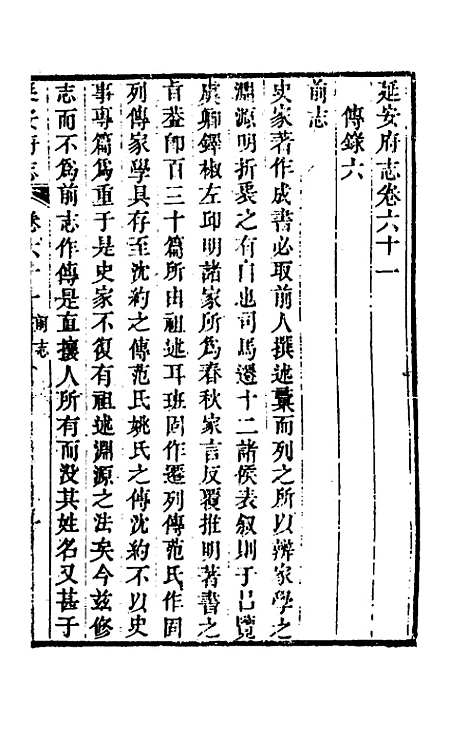 延安府志卷六十一
傳錄六
前志
史家著作成書必取前人撰述彙而列之所以辨家學之
淵源明折衷之有自也司馬遷十二諸侯表叙則于呂覽
虞卿鐸椒左邱明諸家所爲春秋家言反覆推明著書之
旨葢卽百三十篇所由祖述耳班固作遷列傳范氏作固
列傳家學具存至沈約之傳范氏姚氏之傳沈約不以史
事專篇爲重于是史家不復有祖述淵源之法矣今兹修
志而不爲前志作傳是直攘人所有而没其姓名又甚于
延安府志
卷六十一
前志